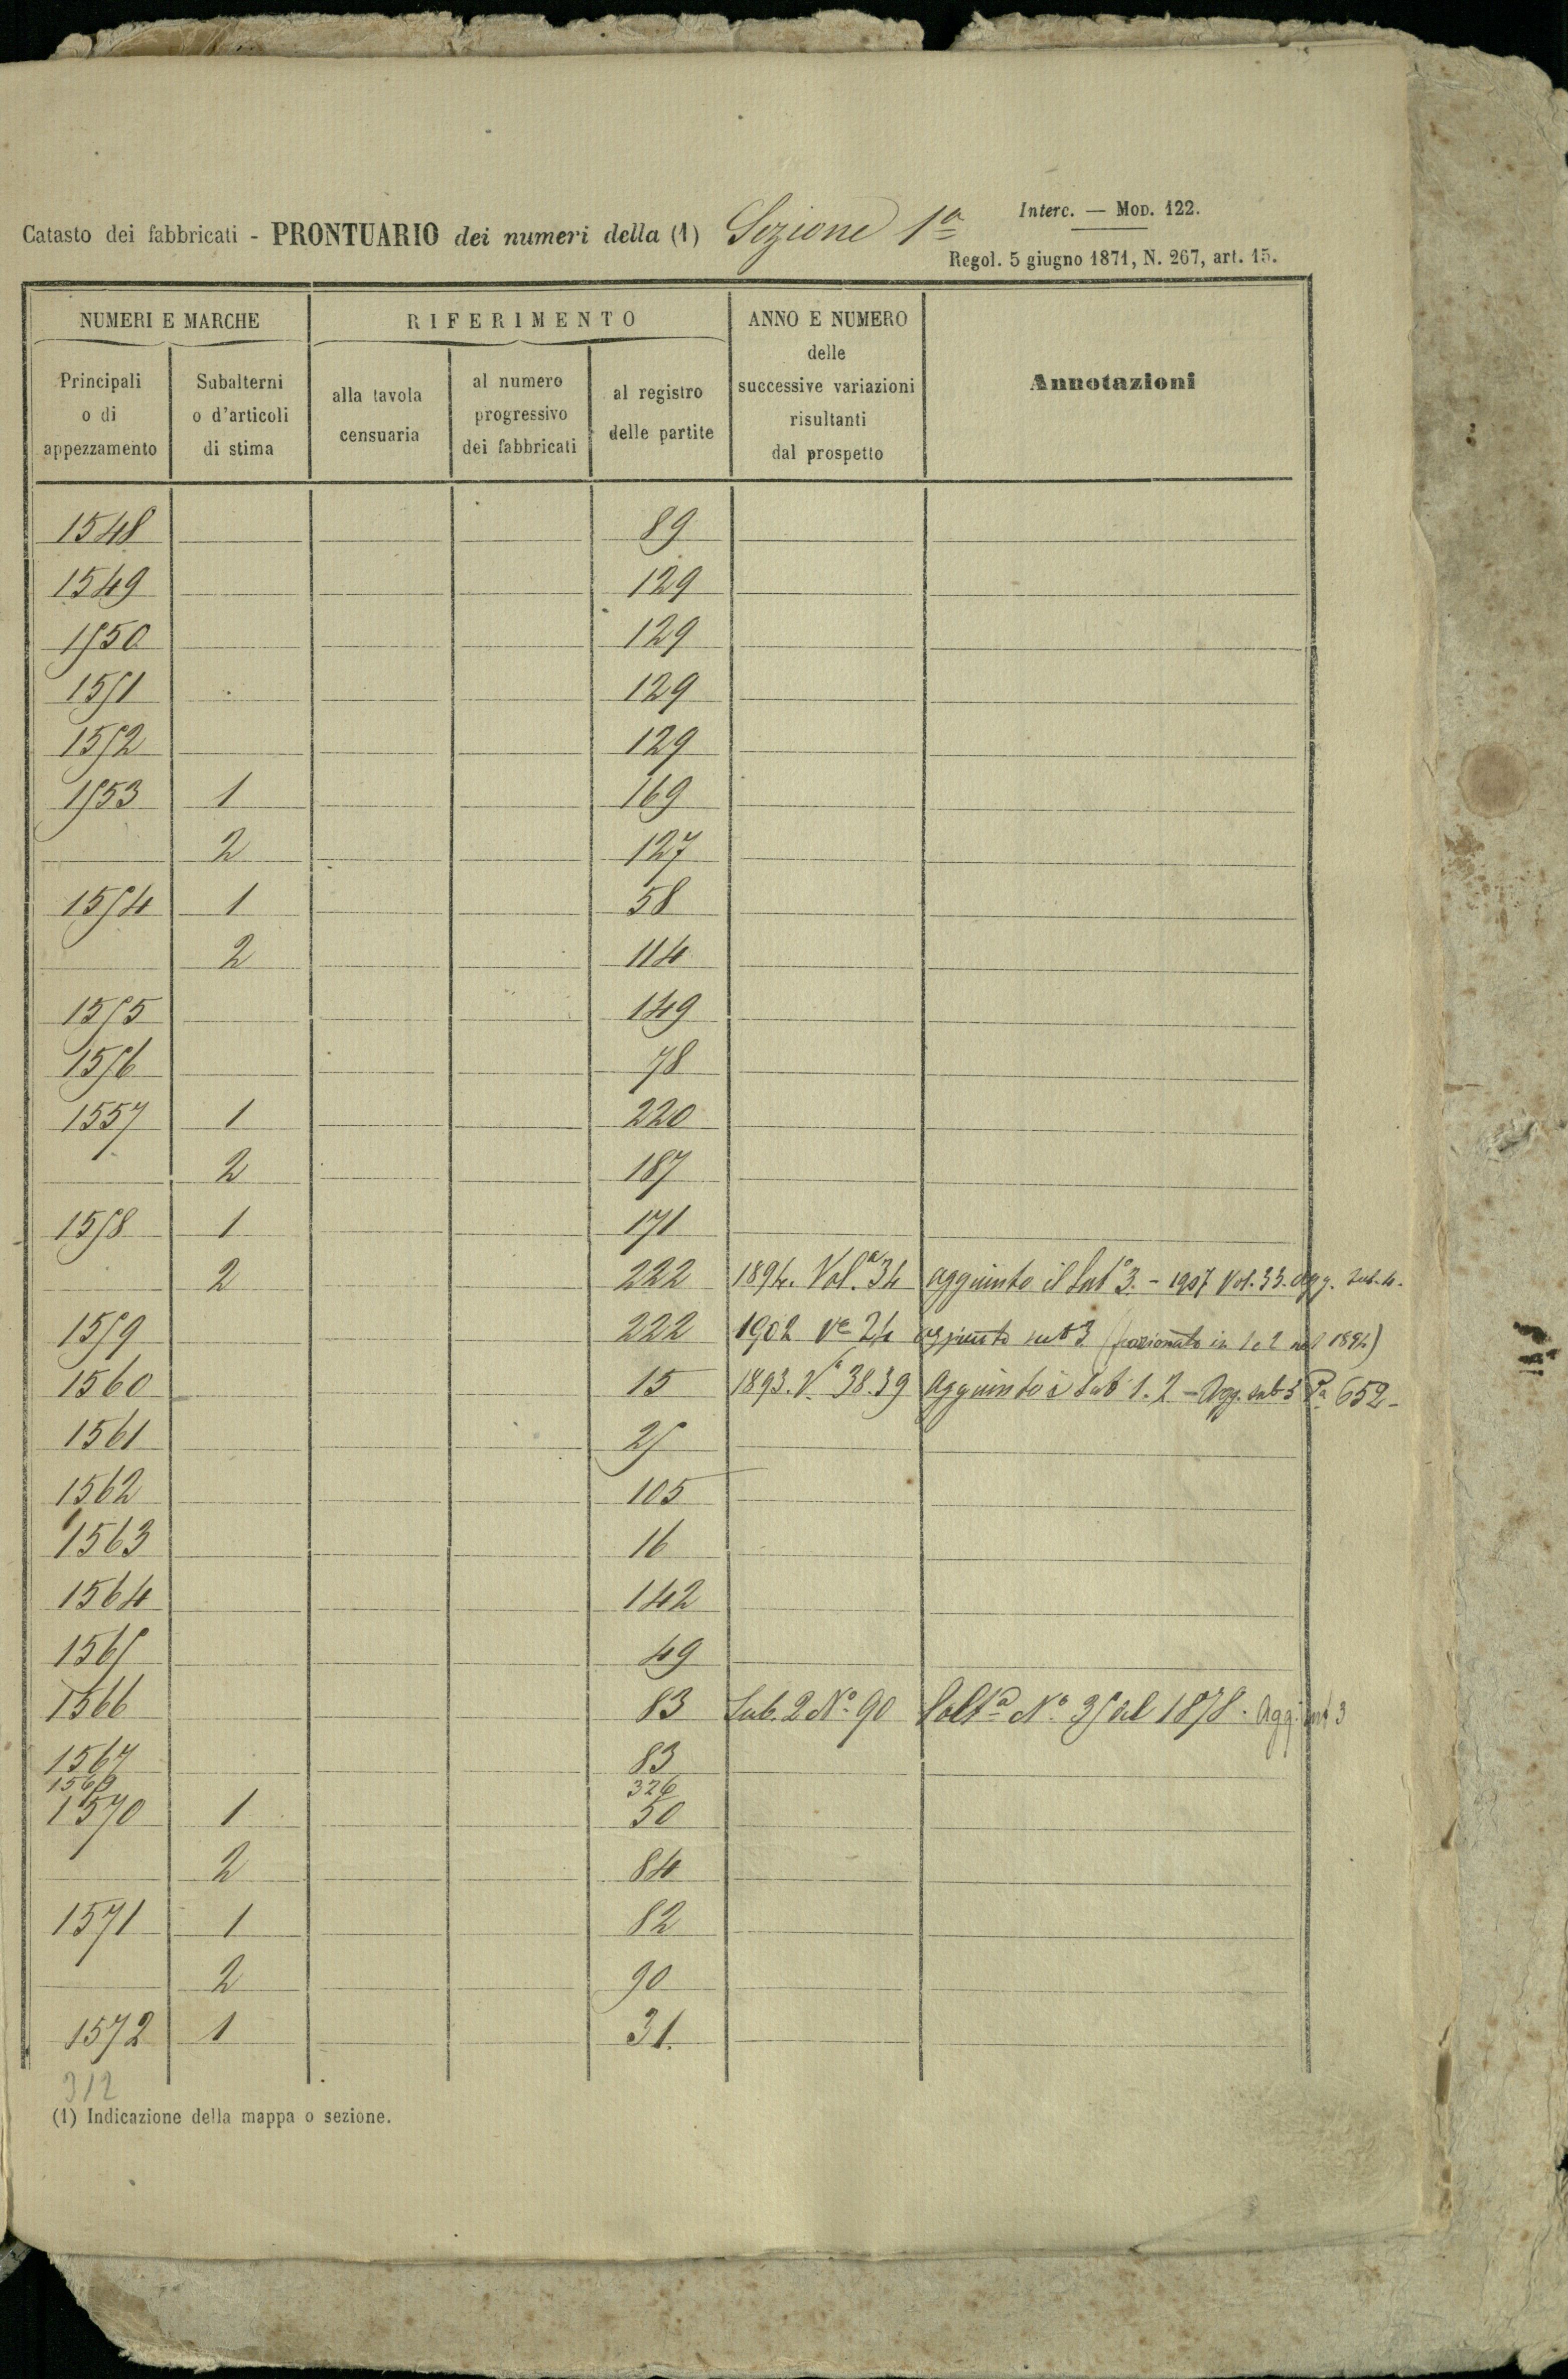 Interc. — Mod. 122.
Catasto dei fabbricati - PRONTUARIO dei numeri della (1) Sezione 1a
Regol. 5 giugno 1871, N. 267, art. 15.
NUMERI E MARCHE RIFERIMENTO ANNO E NUMERO delle successive variazioni risultanti dal prospetto Annotazioni
Principali o di appezzamento Subalterni o d'articoli di stima alla tavola censuaria al numero progressivo dei fabbricati al registro delle partite
1548 89
1549 129
1550 129
1551 129
1552 129
1553 1 169
2 127
1554 1 58
2 114
1555 149
1556 78
1557 1 220
2 187
1558 1 171
2 222 1894. Vol.a 34 aggiunto il Sub° 3. - 1907 Vol. 33. agg. sub. 4.
1559 222 1902 Va 24 aggiunto sub 3 (frazionato in 1 e 2 nel 1894)
1560 15 1893. V.a 38.39 Aggiunto i Sub 1. 2 - Agg. sub 3 Pa 652-
1561 25
1562 105
1563 16
1564 142
1565 49
1566 83 Sub. 2 N° 90 N° 35 del 1878. Agg. sub 3
1567 83
1569 326
1570 1 50
2 84
1571 1 82
2 90
1572 1 31.
312
(1) Indicazione della mappa o sezione.